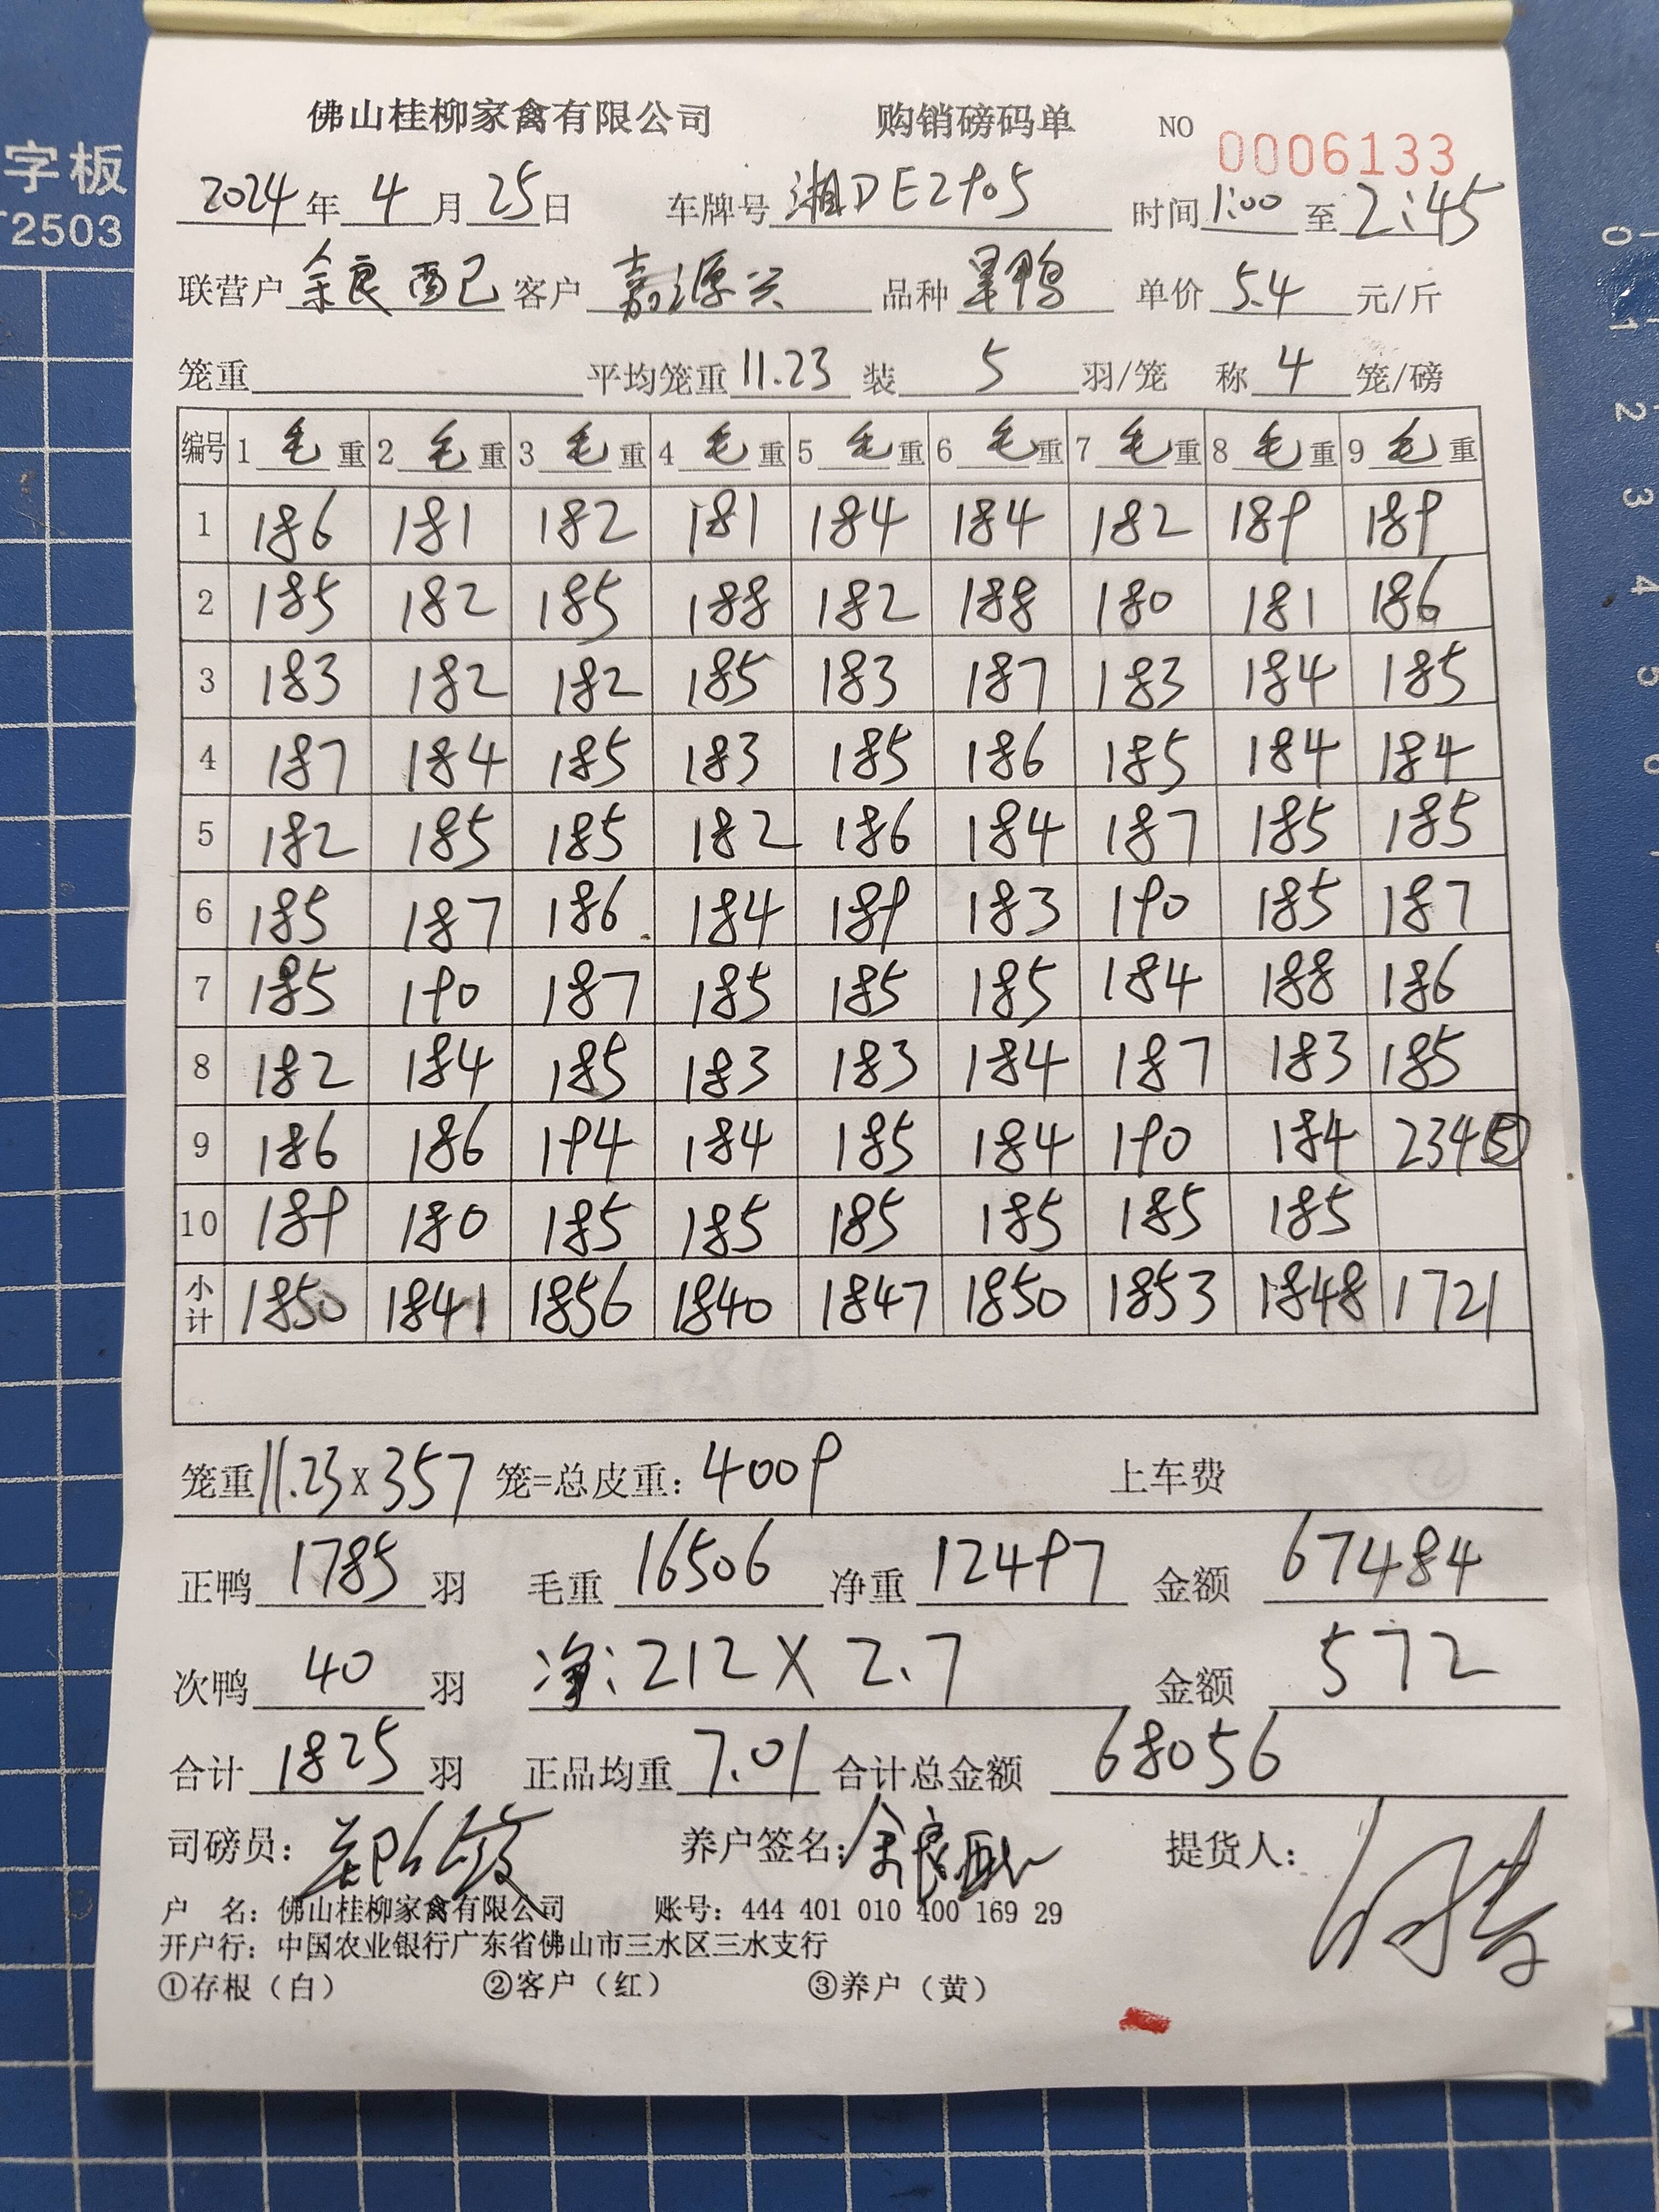 字板
T2503
佛山桂柳家禽有限公司 购销磅码单 NO 0006133
2024年 4月 25日 车牌号 湘DE2905 时间 1:00 至 2:45
联营户 余良酉己 客户 嘉源兴 品种 旱鸭 单价 5.4 元/斤
笼重 平均笼重 11.23 装 5 羽/笼 称 4 笼/磅
编号 1 毛重 2 毛重 3 毛重 4 毛重 5 毛重 6 毛重 7 毛重 8 毛重 9 毛重
1 186 181 182 181 184 184 182 189 189
2 185 182 185 188 182 188 180 181 186
3 183 182 182 185 183 187 183 184 185
4 187 184 185 183 185 186 185 184 184
5 182 185 185 182 186 184 187 185 185
6 185 187 186 184 189 183 190 185 187
7 185 190 187 185 185 185 184 188 186
8 182 184 185 183 183 184 187 183 185
9 186 186 194 184 185 184 190 184 234⑤
10 189 180 185 185 185 185 185 185
小计 1850 1841 1856 1840 1847 1850 1853 1848 1721
笼重 11.23 x 357 笼=总皮重: 4009 上车费
正鸭 1785 羽 毛重 16506 净重 12497 金额 67484
次鸭 40 羽 净: 212 X 2.7 金额 572
合计 1825 羽 正品均重 7.01 合计总金额 68056
司磅员: 养户签名: 提货人:
户 名: 佛山桂柳家禽有限公司 账号: 444 401 010 400 169 29
开户行: 中国农业银行广东省佛山市三水区三水支行
①存根（白） ②客户（红） ③养户（黄）
0
1
2
3
4
5
6